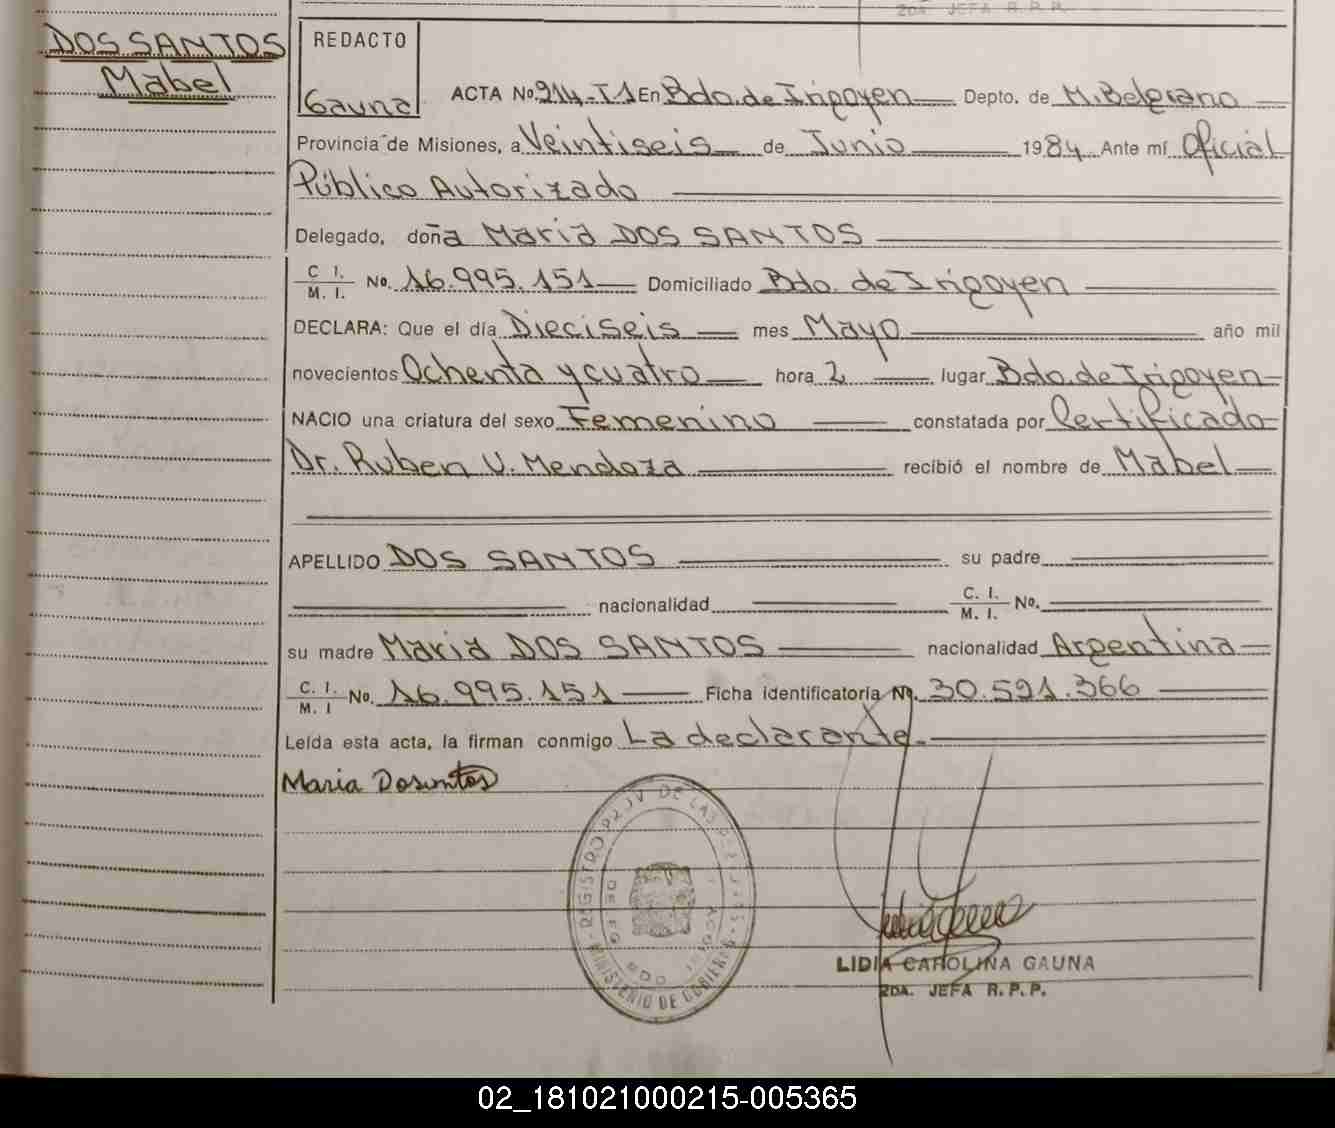 2DA. JEFA R.P.P.
DOS SANTOS
Mabel
REDACTO
Gauna
ACTA No 214-T1 En Bdo. de Irigoyen Depto. de M. Belgrano
Provincia de Misiones, a Veintiseis de Junio 1984 Ante mí Oficial
Público Autorizado
Delegado, doña Maria DOS SANTOS
C. I.
M. I. No. 16.995.151 Domiciliado Bdo. de Irigoyen
DECLARA: Que el día Dieciseis mes Mayo año mil
novecientos Ochenta y cuatro hora 2 lugar Bdo. de Irigoyen
NACIO una criatura del sexo Femenino constatada por Certificado
Dr. Ruben V. Mendoza recibió el nombre de Mabel
APELLIDO DOS SANTOS su padre
nacionalidad C. I. M. I. No.
su madre Maria DOS SANTOS nacionalidad Argentina
C. I.
M. I No. 16.995.151 Ficha identificatoria No. 30.591.366
Leída esta acta, la firman conmigo La declarante.
Maria Dosuntos
REGISTRO PROV. DE LAS PERSONAS
MINISTERIO DE GOBIERNO
LIDIA CAROLINA GAUNA
2DA. JEFA R.P.P.
02_181021000215-005365